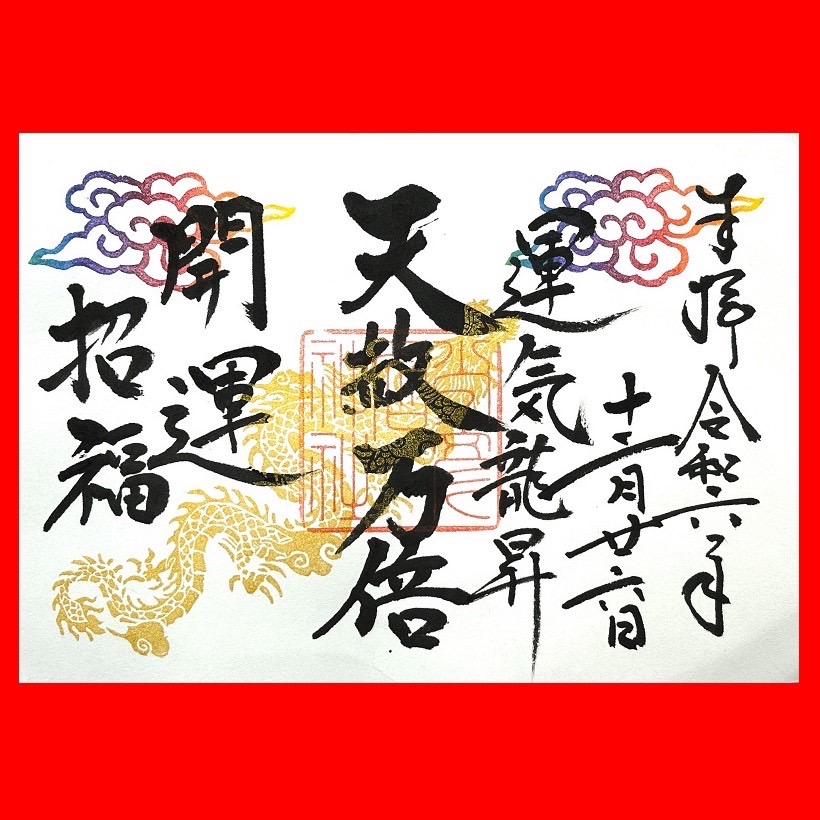 奉拝 令和六年
十二月廿六日
運気龍昇
天赦万倍
開運
招福